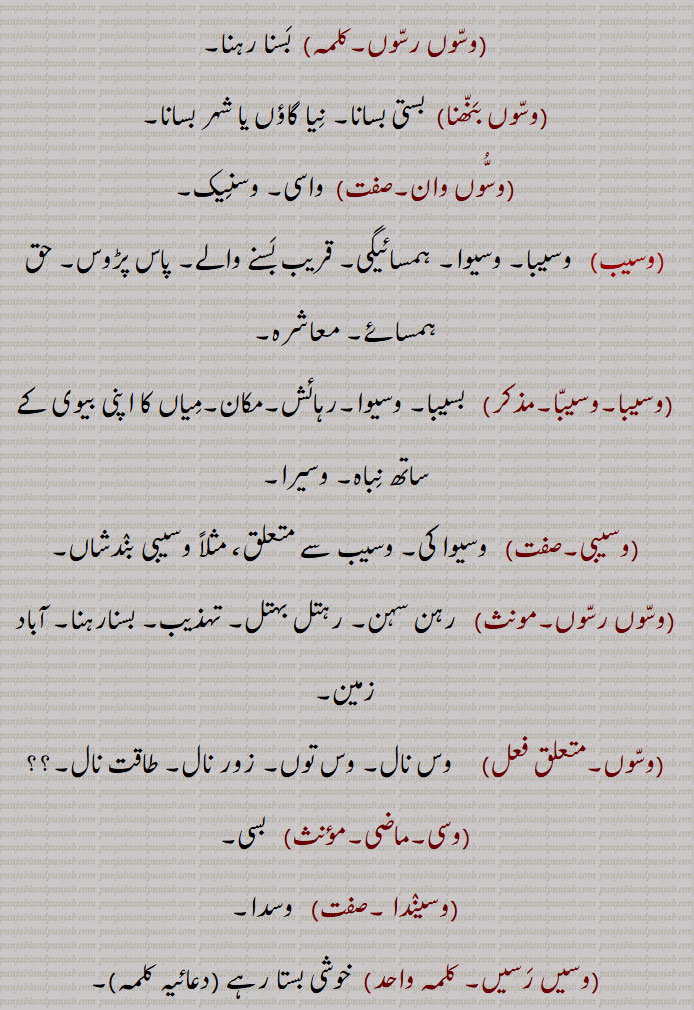 (وسّوں رسّوں۔کلمہ) بَسنا رہنا۔
(وسّوں بَنّھنا) بستی بسانا۔ نِیا گاؤں یا شہر بسانا۔
(وسُّوں وان۔صفت) واسی۔ وسنِیک۔
(وسیب) وسیبا۔ وسیوا۔ ہمسائیگی۔ قریب بَسنے والے۔ پاس پڑوس۔ حق
ہمسائے۔ معاشرہ۔
(وسیبا۔وسیبّا۔مذکر) بسیبا۔ وسیوا۔رہائش۔مکان۔مِیاں کا اپنی بیوی کے
ساتھ نِباہ۔ وسیرا۔
(وسیبی۔صفت) وسیوا کی۔ وسیب سے متعلق، مثلاً وسیبی بنْدشاں۔
(وسّوں رسّوں۔مونث) رہن سہن۔ رہتل بہتل۔ تہذیب۔ بسنارہنا۔ آباد
زمین۔
(وسّوں۔متعلق فعل) وس نال۔ وس توں۔ زور نال۔ طاقت نال۔؟؟
(وسی۔ماضی۔مؤنث) بسی۔
(وسینْدا ۔صفت) وسدا۔
(وسیں رَسیں۔ کلمہ واحد) خوشی بستا رہے (دعائیہ کلمہ)۔